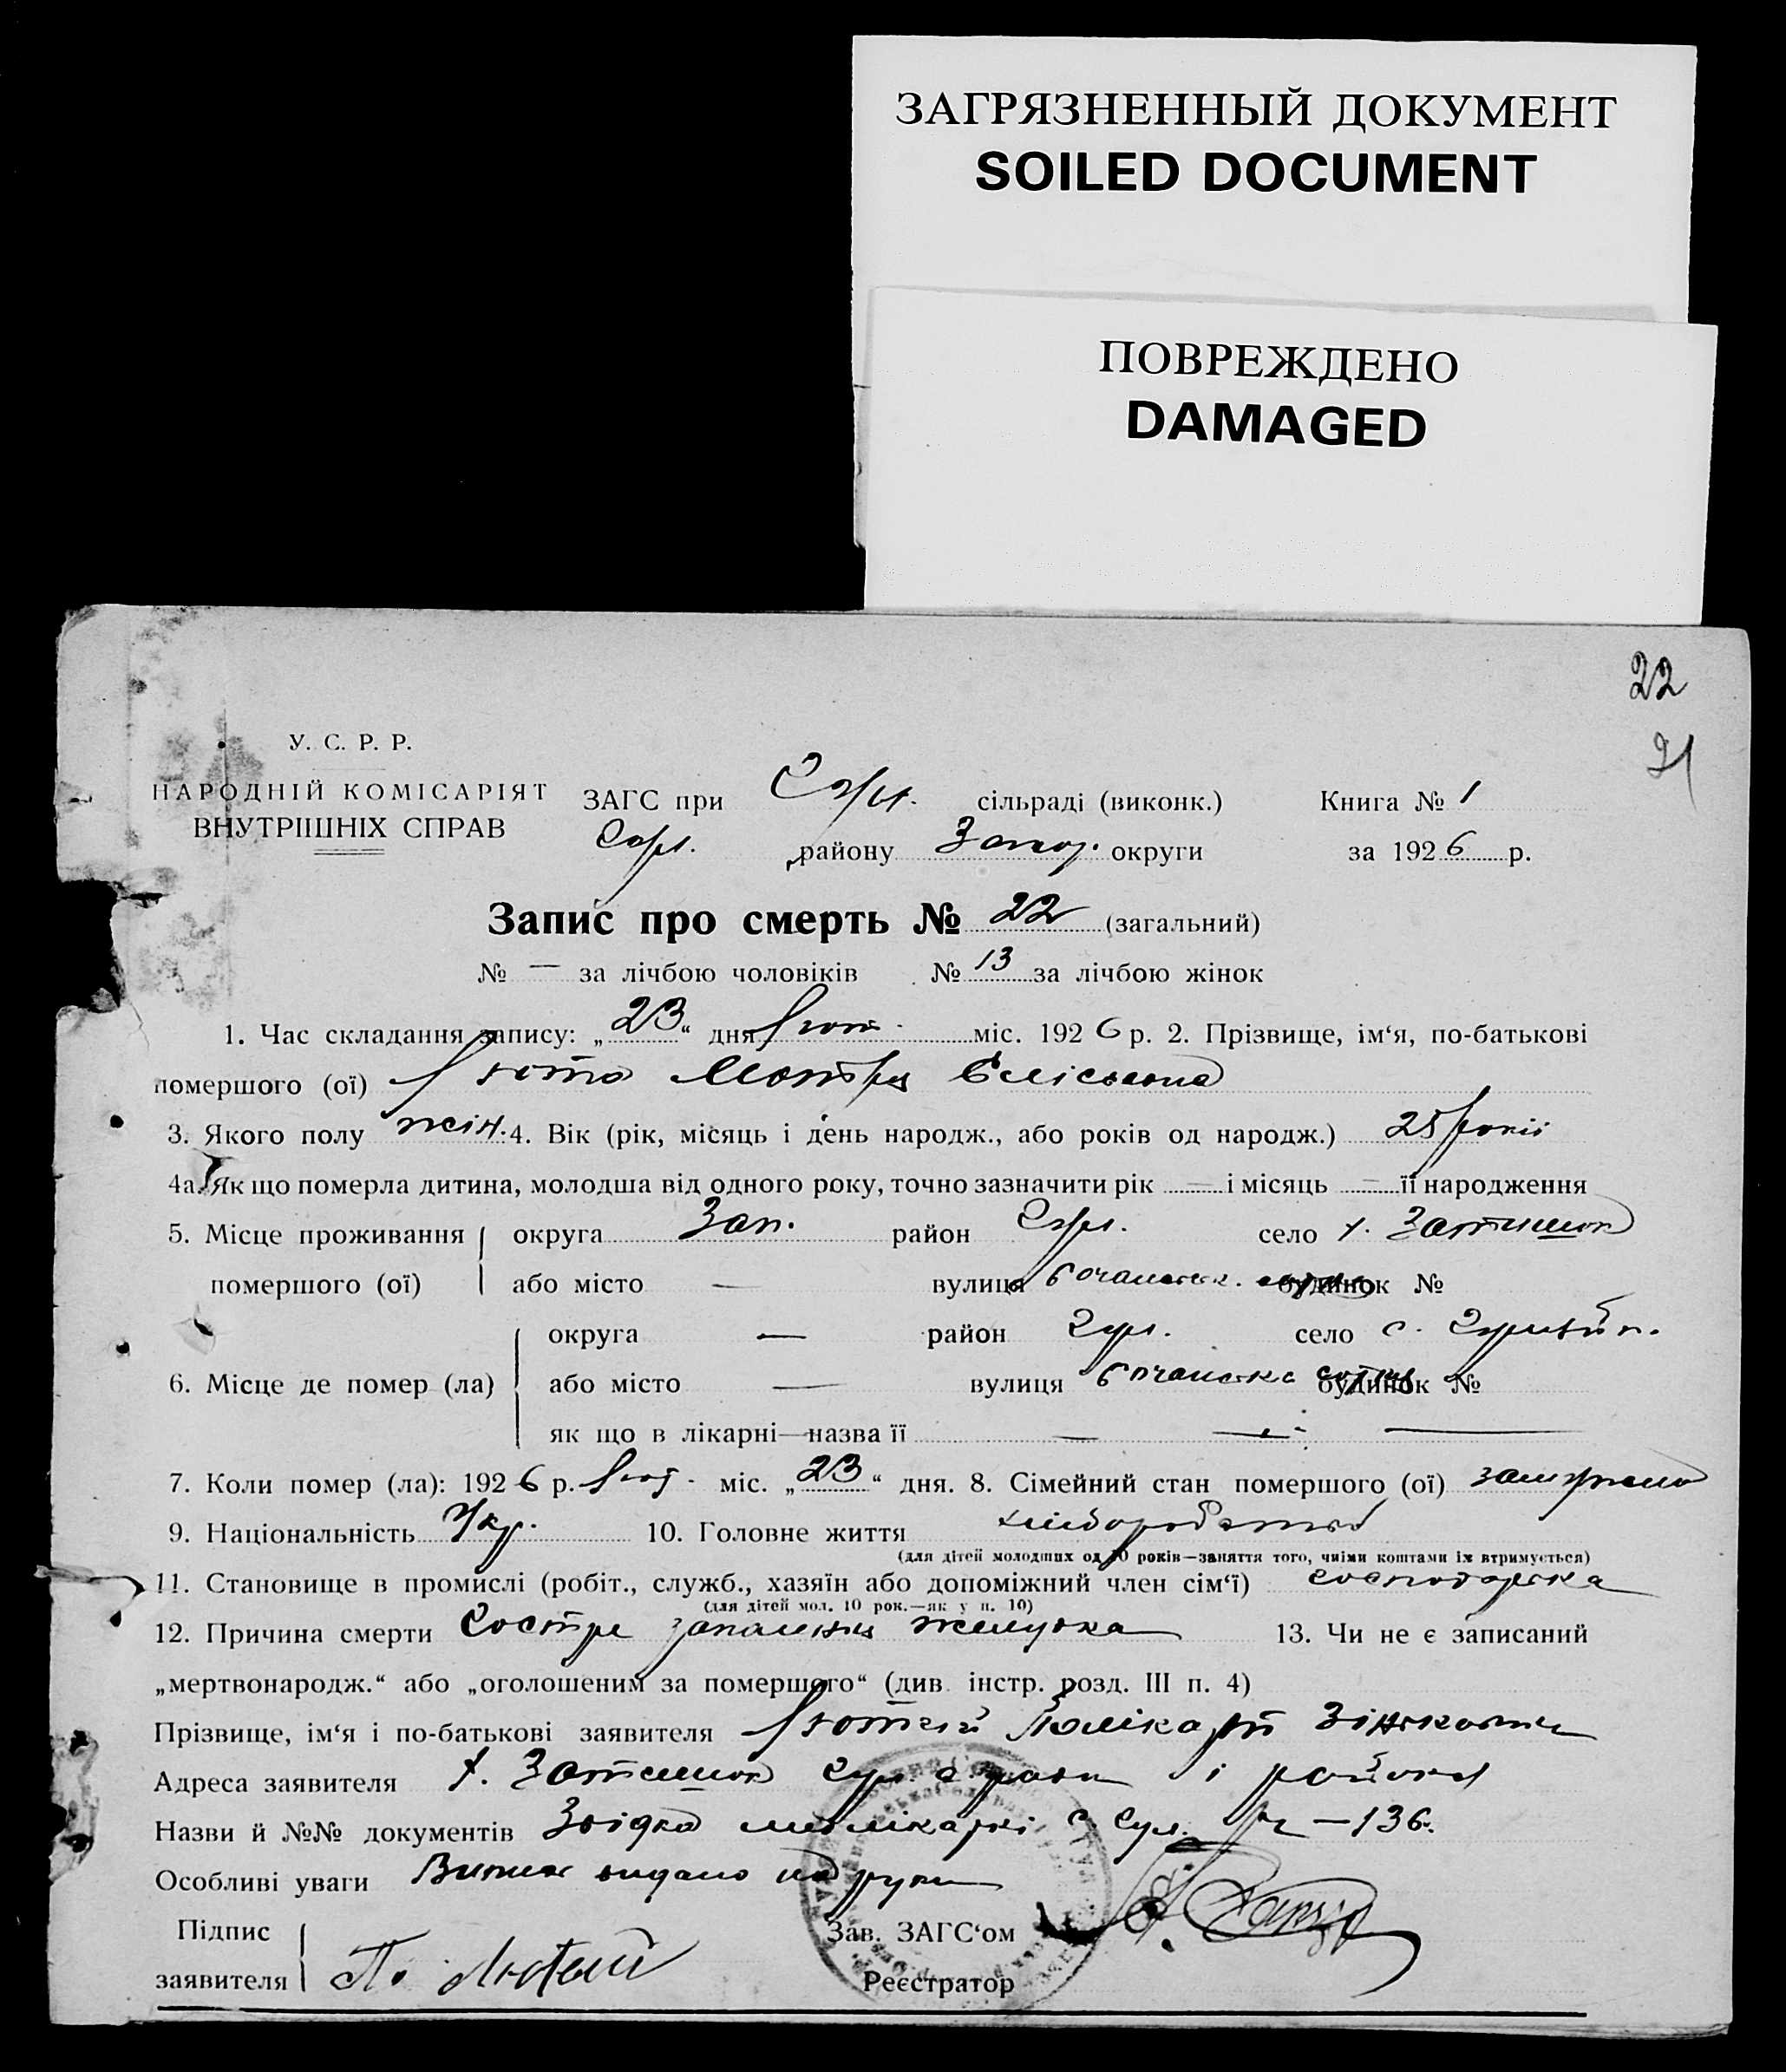 ЗАГРЯЗНЕННЫЙ ДОКУМЕНТ
SOILED DOCUMENT
ПОВРЕЖДЕНО
DAMAGED
22
21
У. С. Р. Р.
НАРОДНІЙ КОМІСАРІЯТ
ВНУТРІШНІХ СПРАВ
ЗАГС при сільраді (виконк.) Книга № 1
району Запор. округи за 1926 р.
Запис про смерть № 22 (загальний)
№ — за лічбою чоловіків № 13 за лічбою жінок
1. Час складання запису: „23“ дня Лют. міс. 1926 р. 2. Прізвище, ім‘я, по-батькові
помершого (ої) Люта Мотря
3. Якого полу жін. 4. Вік (рік, місяць і день народж., або років од народж.) 25 років
4а. Як що померла дитина, молодша від одного року, точно зазначити рік — і місяць — її народження
5. Місце проживання округа Зап. район село х. Затишок
помершого (ої) або місто — вулиця будинок №
округа — район село с.
6. Місце де помер (ла) або місто — вулиця будинок №
як що в лікарні—назва її — — —
7. Коли помер (ла): 1926 р. Лют. міс. „23“ дня. 8. Сімейний стан помершого (ої) замужем
9. Національність Укр. 10. Головне життя хліборобство
(для дітей молодших од 10 років—заняття того, чиїми коштами їх втримується)
11. Становище в промислі (робіт., служб., хазяїн або допоміжний член сім‘ї) господарка
(для дітей мол. 10 рок.—як у п. 10)
12. Причина смерти Гостре запалення желудка 13. Чи не є записаний
„мертвонародж.“ або „оголошеним за помершого“ (див. інстр. розд. III п. 4)
Прізвище, ім‘я і по-батькові заявителя Лютий Полікарп
Адреса заявителя х. Затишок і району
Назви й №№ документів лікарні с. № — 136.
Особливі уваги видано на руки
Підпис
заявителя П. Лютий
Зав. ЗАГС‘ом
Реєстратор